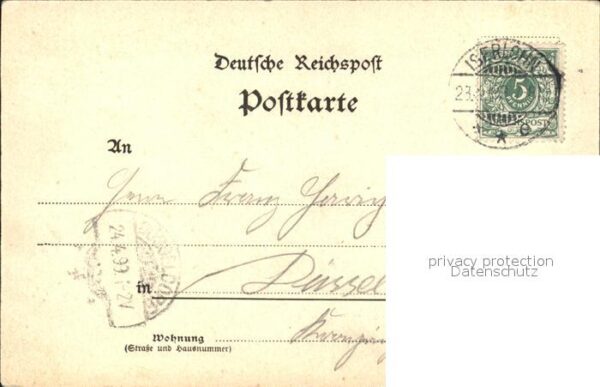 Deutsche Reichspost
Postkarte
ISERLOHN
23.
5
PFENNIG
An
Herrn Franz
24.4.99. 1-2V
in Düssel
privacy protection
Datenschutz
Wohnung
(Straße und Hausnummer)